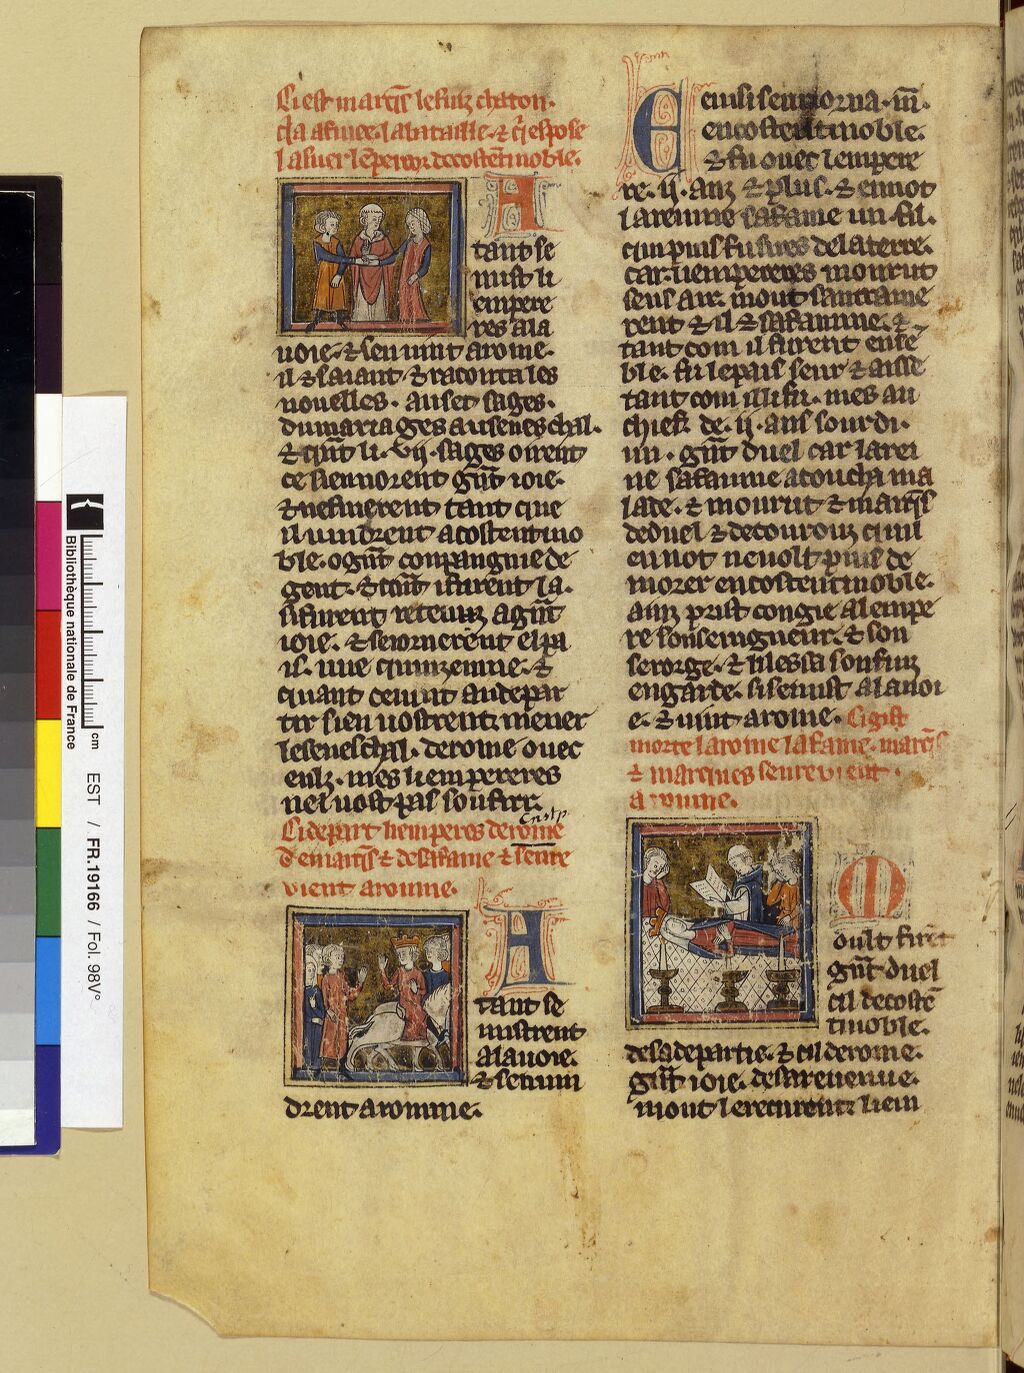 Ci est marq̄s le fiuz chaton.
q̄ la afinee. la bataille. ⁊ q̄ espose
la suer lēpereor. de costētinoble.
A
tant se
mist li
empere
res a la
uoie. ⁊ sen uint a rome.
il ⁊ sa iant ⁊ raconta les
nouelles. au set sages.
du mariages au seneschal.
⁊ q̄nt li .vij. sages oirent
ce si en norent gr̄nt ioie.
⁊ ne finerent tant que
il uindrent a costentino
ble. o gr̄nt conpangnie de
gent. ⁊ q̄nt il furent la.
si furent receuz a gr̄nt
ioie. ⁊ seiornerent el pa
is. une quinzeinne. ⁊
quant ce uint au depar
tir si en uostrent mener
le seneschal. de rome ouec
eulz. mes li empereres
nel uost pas soufrir.
Ci depart li emperes de rome
de marq̄s ⁊ de sa fame ⁊ sen re
vient a romme.
A
tant se
mistrent
a la uoie.
⁊ sen uin
drent a romme.
E
einsi seiiorna .m̄.
en costentinoble.
⁊ fu ouec lempere
re. ij. anz ⁊ plus. ⁊ en not
la reinne sa fame un fil.
qui puis fu sires de la terre.
car li empereres mourut
sens air. mout santrame
rent ⁊ il ⁊ sa famme. ⁊
tant com il furent ense
ble. fu le pais seur ⁊ aisse
tant com illi fu. mes au
chief de .ij. ans sourdi.
un. gr̄nt duel car la rei
ne sa famme acoucha ma
lade. ⁊ mourut ⁊ marq̄s
de duel ⁊ de courouz quil
en not ne uolt plus de
morer en costentinoble.
ainz prist congie a lempe
re son seingneur. ⁊ son
serorge. ⁊ lessa son fiuz
en garde. si se mist a la uoi
e. ⁊ uint a rome. Ci gist
morte la rome la fame. marq̄s
⁊ marques sen revient.
a romme.
M
oult firēt
gr̄nt duel
cil de costē
tinoble.
de sa departie. ⁊ cil de rome.
gr̄nt ioie. de sa reuenue.
mout le recurent li em
Bibliothèque nationale de France
cm
EST / FR.19166 / Fol. 98V°